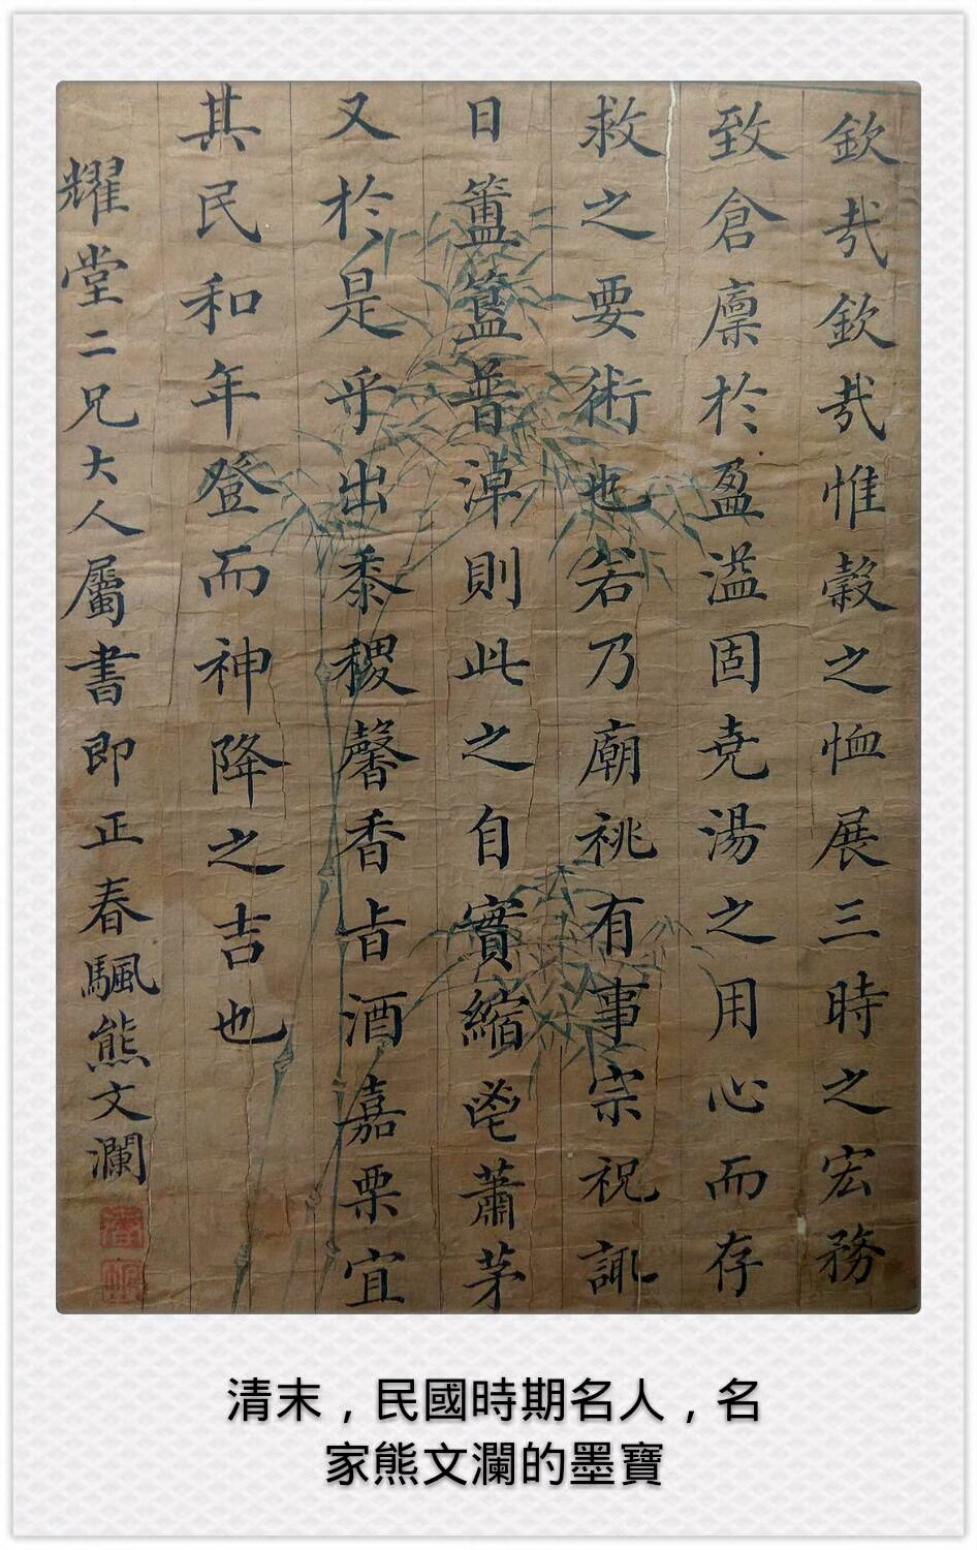 欽哉欽哉惟穀之恤展三時之宏務
致倉廩於盈溢固尭湯之用心而存
救之要術也若乃廟祧有事宗祝諏
日簠簋普淖則此之自實縮鬯蕭茅
又於是乎出黍稷馨香旨酒嘉栗宜
其民和年登而神降之吉也
耀堂二兄大人屬書即正春颿熊文瀾
清末，民國時期名人，名
家熊文瀾的墨寶